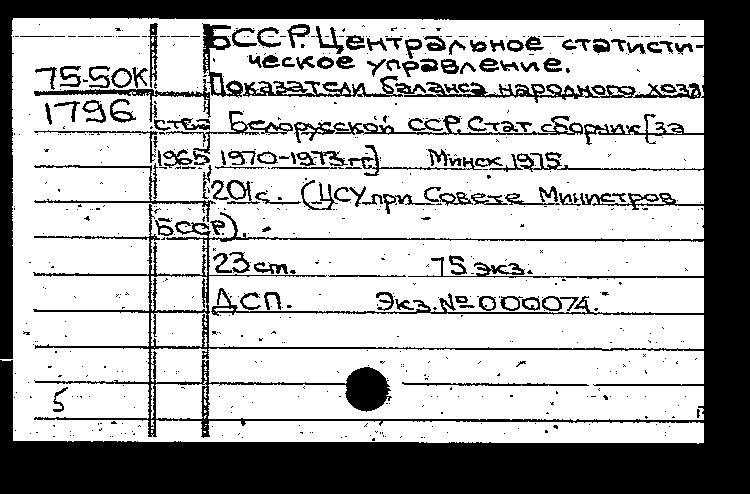 БССР. Центральное статисти-
ческое управление.
75-50К Показатели баланса народного хозяй
1796 ства Белорусской ССР. Стат. сборник [за
1965 1970-1973 гг.] Минск, 1975.
201 с. (ЦСУ при Совете Министров
БССР).
23 см. 75 экз.
ДСП. Экз. № 000074.
5